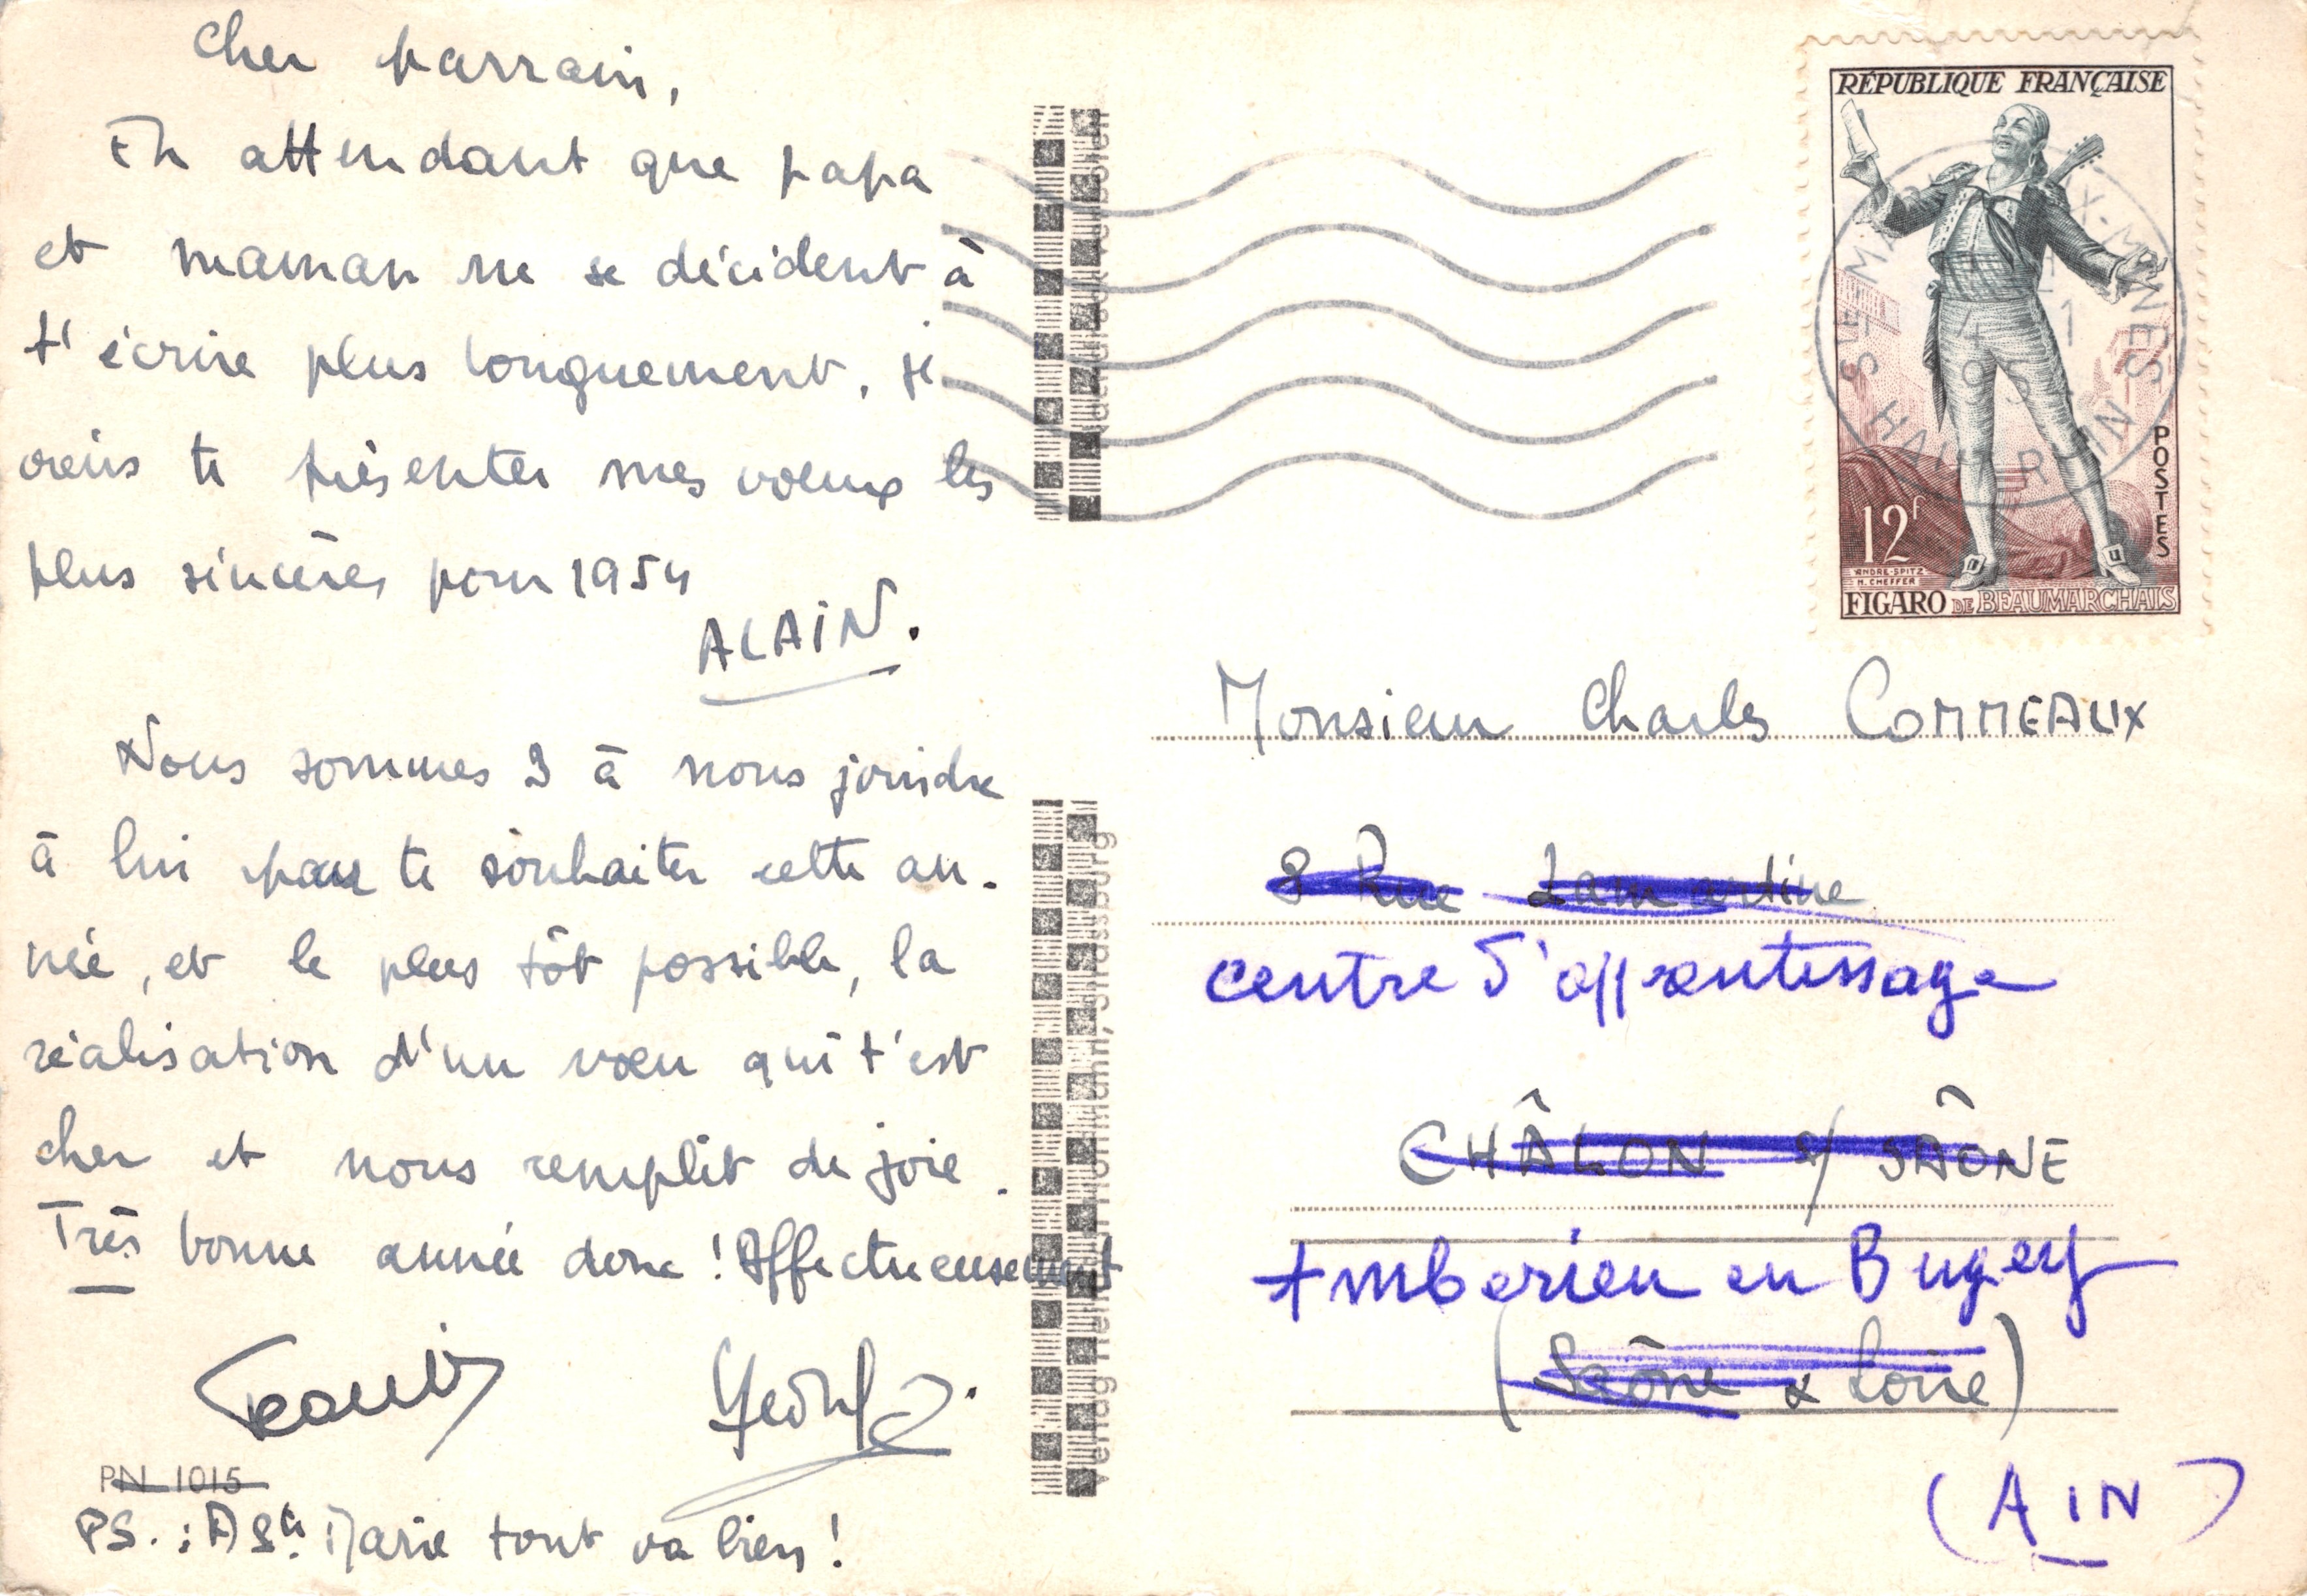 Cher parrain,
En attendant que papa
et maman ne se décident à
t'écrire plus longuement, je
viens te présenter mes voeux les
plus sincères pour 1954
ALAIN.
Nous sommes 3 à nous joindre
à lui pour te souhaiter cette an-
née, et le plus tôt possible, la
réalisation d'un voeu qui t'est
cher et nous remplit de joie.
Très bonne année donc ! Affectueusement
PN 1015
PS. : A Ste Marie tout va bien !
Verlag Hermann, Strassburg
RÉPUBLIQUE FRANÇAISE
POSTES
12F
ANDRE-SPITZ
H. CHEFFER
FIGARO DE BEAUMARCHAIS
STE MARIE-AUX-MINES
HAUT RHIN
Monsieur Charles COMMEAUX
8 Rue Lamartine
centre d'apprentissage
CHÂLON s/ SAÔNE
Amberieu en Bugey
(Saône & Loire)
(AIN)